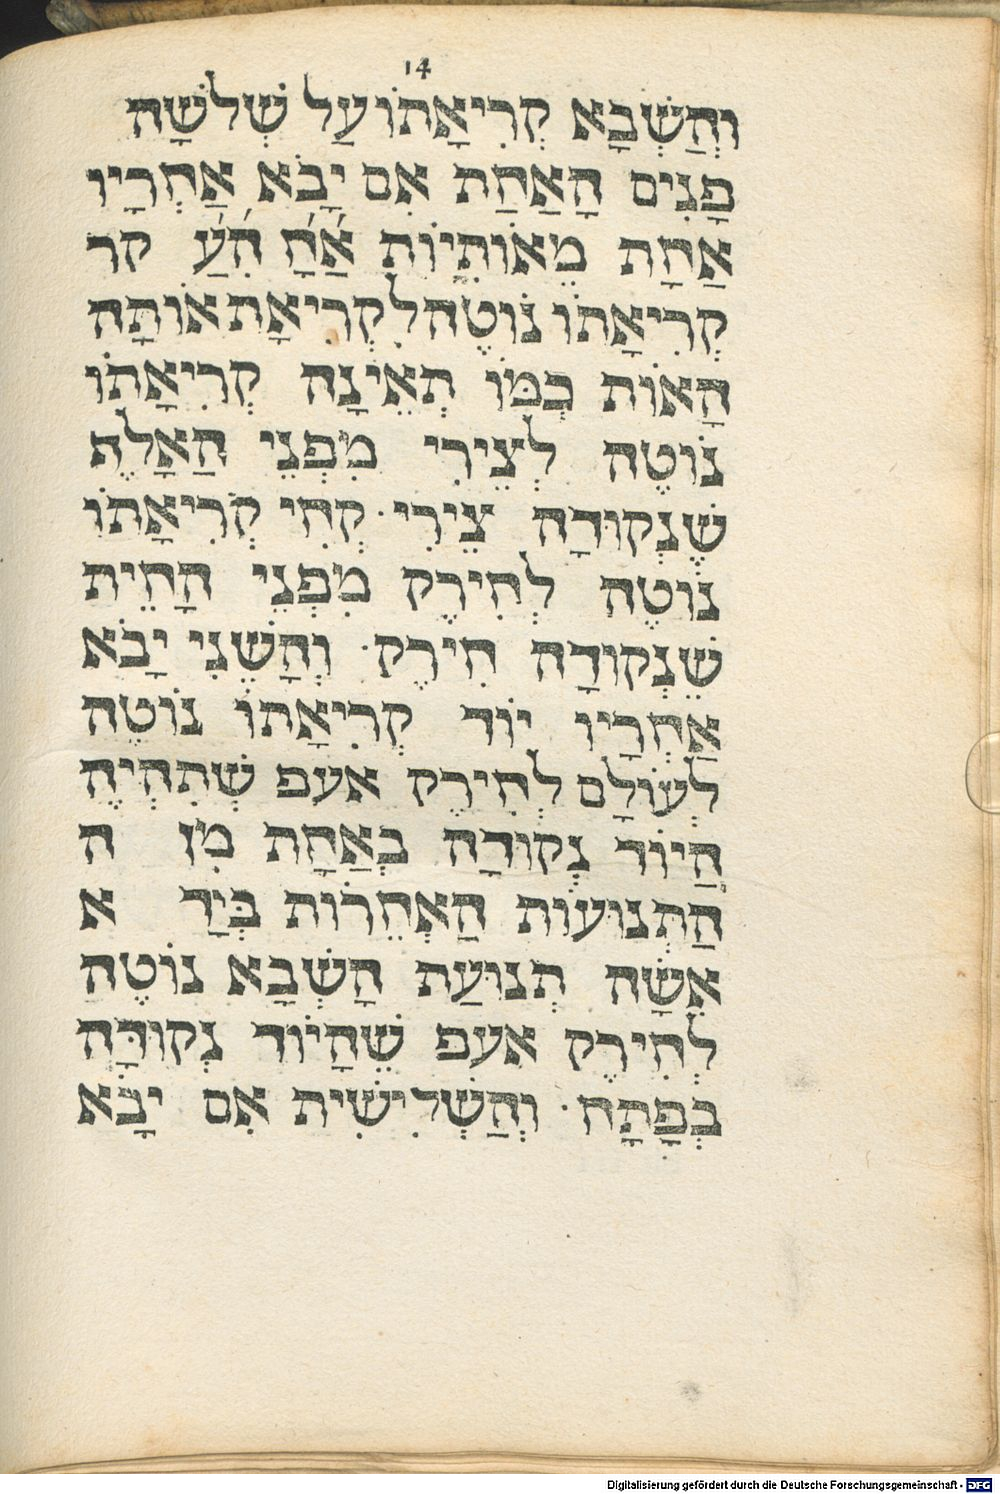 14
וְהַשְּׁבָא קְרִיאָתוֹ עַל שְׁלשָׁה
פָנִים הָאַחַת אִם יָבֹא אַחְרָיו
אַחָת מֵאוֹתִיּוֹת אַ֗חָ֗הֹ֗עַ֗ קר
קְרִיאָתוֹ נוֹטֶה לִקְרִיאָת אוֹתָה
הָאוֹת כְּמוֹ תְאֵינָה קְרִיאָתוֹ
נוֹטֶה לְצֵירִי מִפְּנֵי הַאָלֶף
שֶׁנְּקוּדָה צֵירִי · קְחִי קְרִיאָתוֹ
נוֹטֶה לְחִירֶק מִפְּנֵי הָחֵית
שֶׁנְּקוּדָה חִירֶק · וְהָשֵׁנִי יָבֹא
אַחְרָיו יוֹד קְרִיאָתוֹ נוֹטֶה
לְעוֹלָם לְחִירֶק אִעפ שְׁתִּהְיֶה
הַיּוֹד נְקוּדָה בְאַחָת מִן ה
הַתְּנוּעוֹת הַאְחֵרוֹת בְּיָד א
אִשָּׁה תְנוּעַת הָשְׁבָא נוֹטֶה
לְחִירֶק אעפ שֶׁהָיוֹד נְקוּדָּה
בְּפָתָּח · וְהַשְּׁלִישִׁית אִם יָבֹא
Digitalisierung gefördert durch die Deutsche Forschungsgemeinschaft - DFG